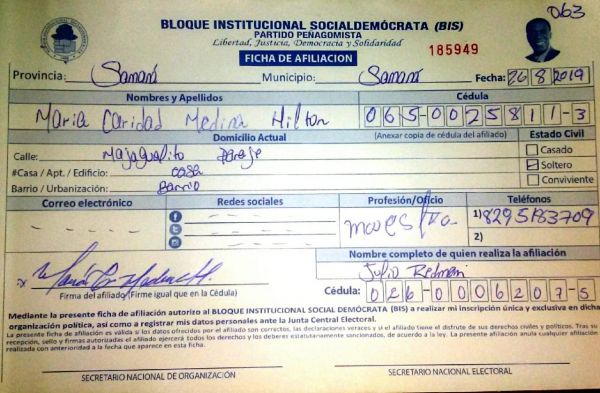 063
BLOQUE INSTITUCIONAL SOCIALDEMÓCRATA (BIS)
PARTIDO PEÑAGOMISTA
Libertad, Justicia, Democracia y Solidaridad
185949
FICHA DE AFILIACION
Provincia: Samaná Municipio: Samaná Fecha: 26/8/2019
Nombres y Apellidos Cédula
Maria Caridad Medina Hilton 065-0025811-3
Domicilio Actual (Anexar copia de cédula del afiliado) Estado Civil
Calle: Majagualito Paraje Casado
#Casa / Apt. / Edificio: casa Soltero
Barrio / Urbanización: Barrio Conviviente
Correo electrónico Redes sociales Profesión/Oficio Teléfonos
maestra 1) 829
2)
Nombre completo de quien realiza la afiliación
Julio Redman
Firma del afiliado (Firme igual que en la Cédula) Cédula: 026-0006207-5
Mediante la presente ficha de afiliación autorizo al BLOQUE INSTITUCIONAL SOCIAL DEMÓCRATA (BIS) a realizar mi inscripción única y exclusiva en dicha
organización política, así como a registrar mis datos personales ante la Junta Central Electoral.
La presente ficha de afiliación es válida si los datos ofrecidos por el afiliado son correctos, las declaraciones veraces y si el afiliado tiene el disfrute de sus derechos civiles y políticos. Tras su
recepción, sello y firmas autorizadas el afiliado ejercerá todos los derechos y los deberes estatutariamente sancionados, de acuerdo a la ley. La presente afiliación anula cualquier afiliación
realizada con anterioridad a la fecha que aparece en esta ficha.
SECRETARIO NACIONAL DE ORGANIZACIÓN SECRETARIO NACIONAL ELECTORAL